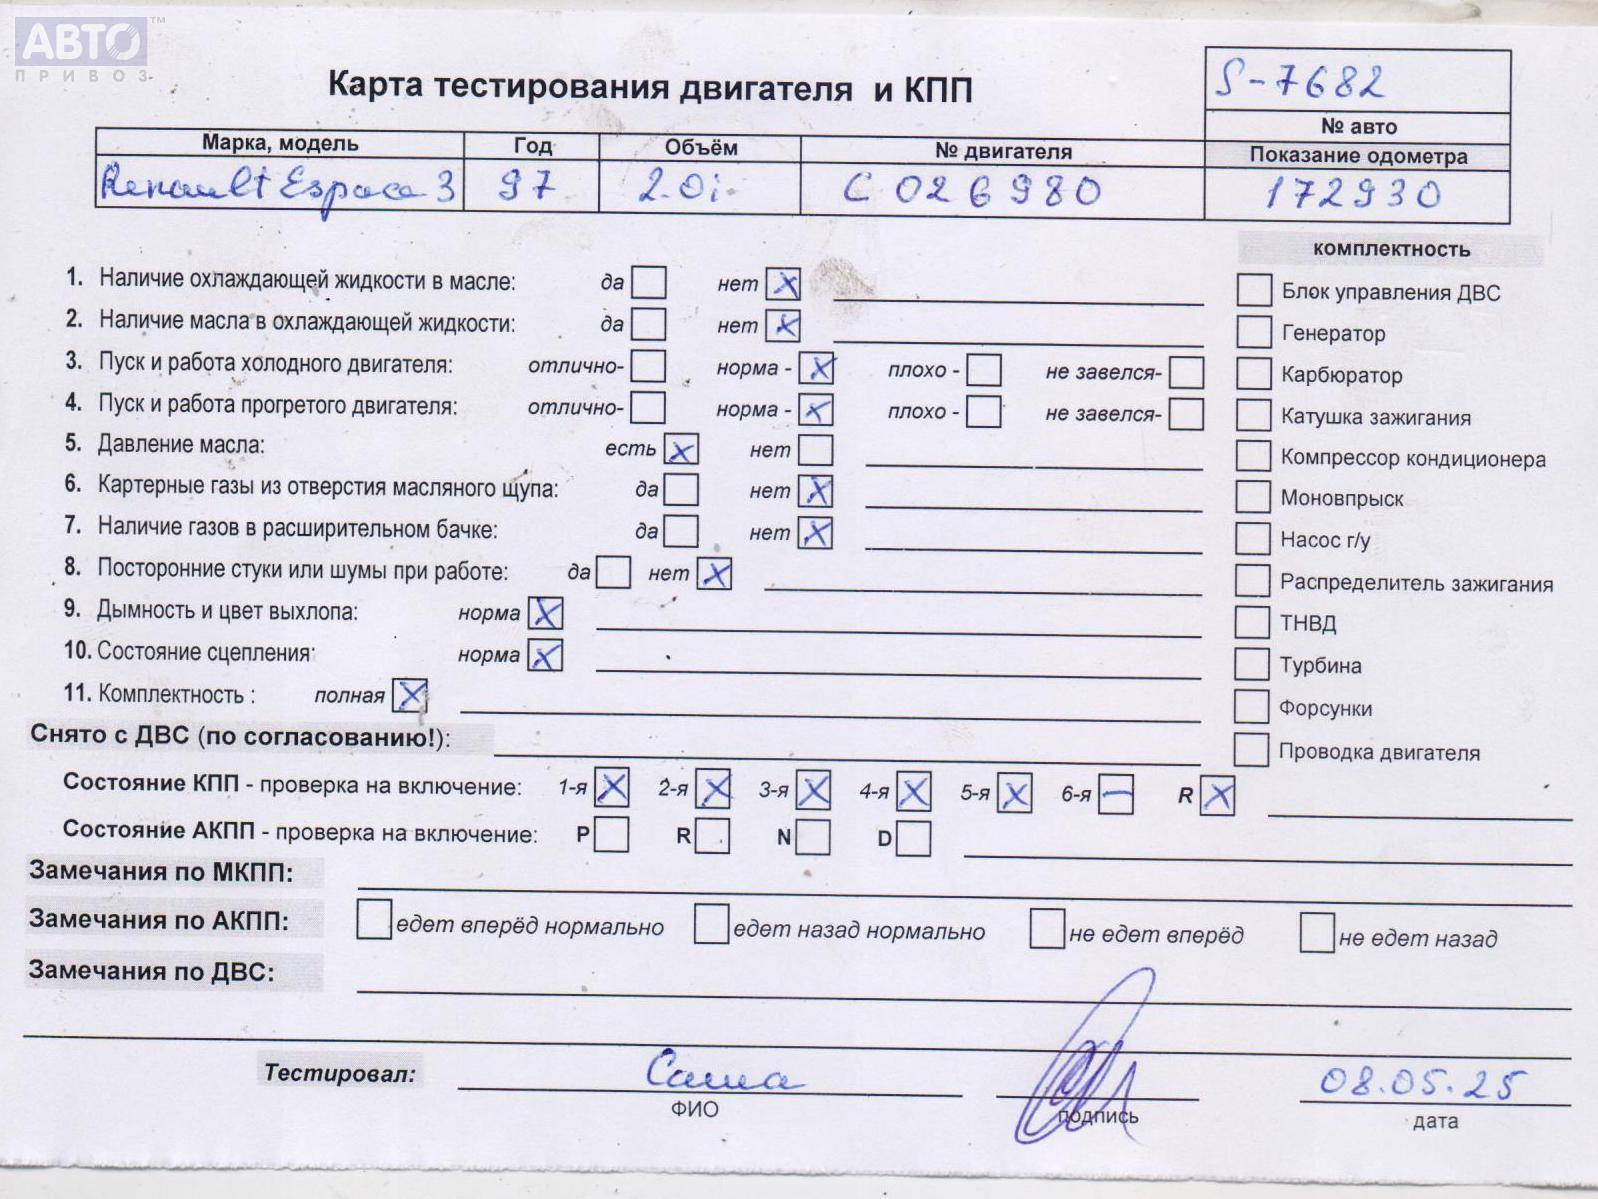 АВТО™
ПРИВОЗ
Карта тестирования двигателя и КПП
S-7682
№ авто
Марка, модель Год Объём № двигателя Показание одометра
Renault Espace 3 97 2.0i C 026980 172930
комплектность
1. Наличие охлаждающей жидкости в масле: да нет x
Блок управления ДВС
2. Наличие масла в охлаждающей жидкости: да нет x
Генератор
3. Пуск и работа холодного двигателя: отлично- норма - x плохо - не завелся-
Карбюратор
4. Пуск и работа прогретого двигателя: отлично- норма - x плохо - не завелся-
Катушка зажигания
5. Давление масла: есть x нет
Компрессор кондиционера
6. Картерные газы из отверстия масляного щупа: да нет x
Моновпрыск
7. Наличие газов в расширительном бачке: да нет x
Насос г/у
8. Посторонние стуки или шумы при работе: да нет x
Распределитель зажигания
9. Дымность и цвет выхлопа: норма x
ТНВД
10. Состояние сцепления: норма x
Турбина
11. Комплектность : полная x
Форсунки
Снято с ДВС (по согласованию!):
Проводка двигателя
Состояние КПП - проверка на включение: 1-я x 2-я x 3-я x 4-я x 5-я x 6-я – R x
Состояние АКПП - проверка на включение: P R N D
Замечания по МКПП:
Замечания по АКПП: едет вперёд нормально едет назад нормально не едет вперёд не едет назад
Замечания по ДВС:
Тестировал: Саша 08.05.25
ФИО подпись дата